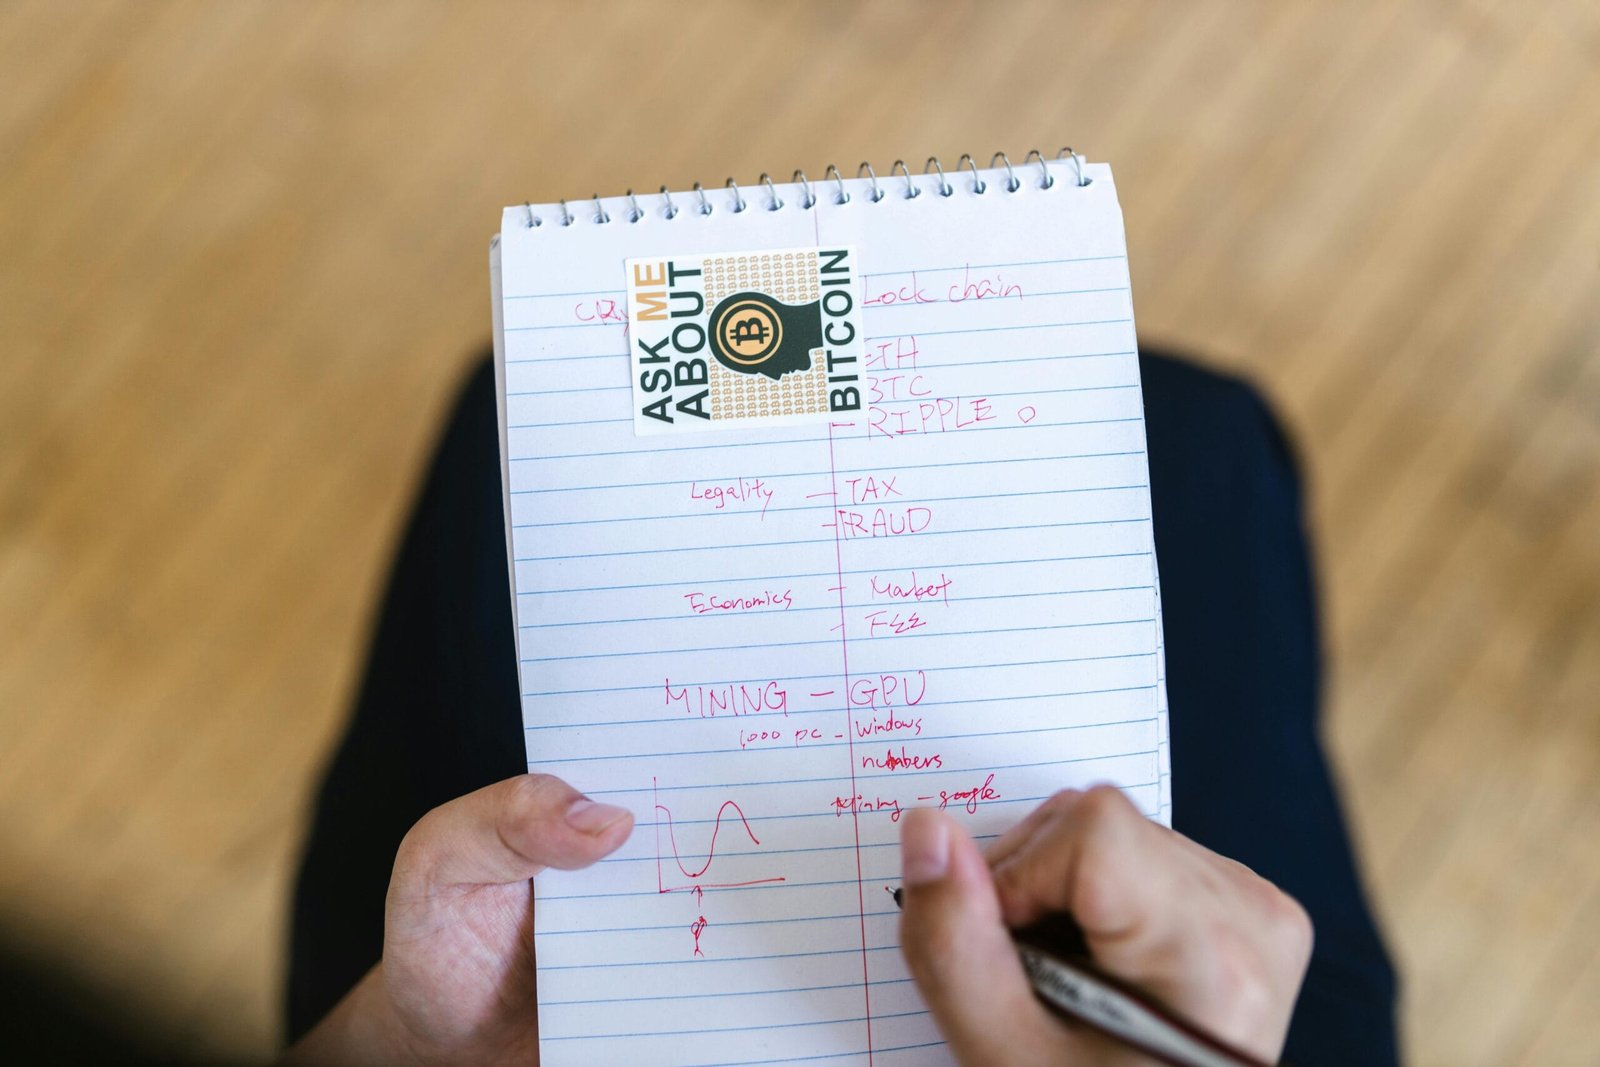 ASK ME
ABOUT
BITCOIN
lock chain
ETH
BTC
- RIPPLE o
Legality - TAX
- FRAUD
Economics - Market
- FEE
MINING - GPU
1,000 pc - Windows
numbers
Mining - google